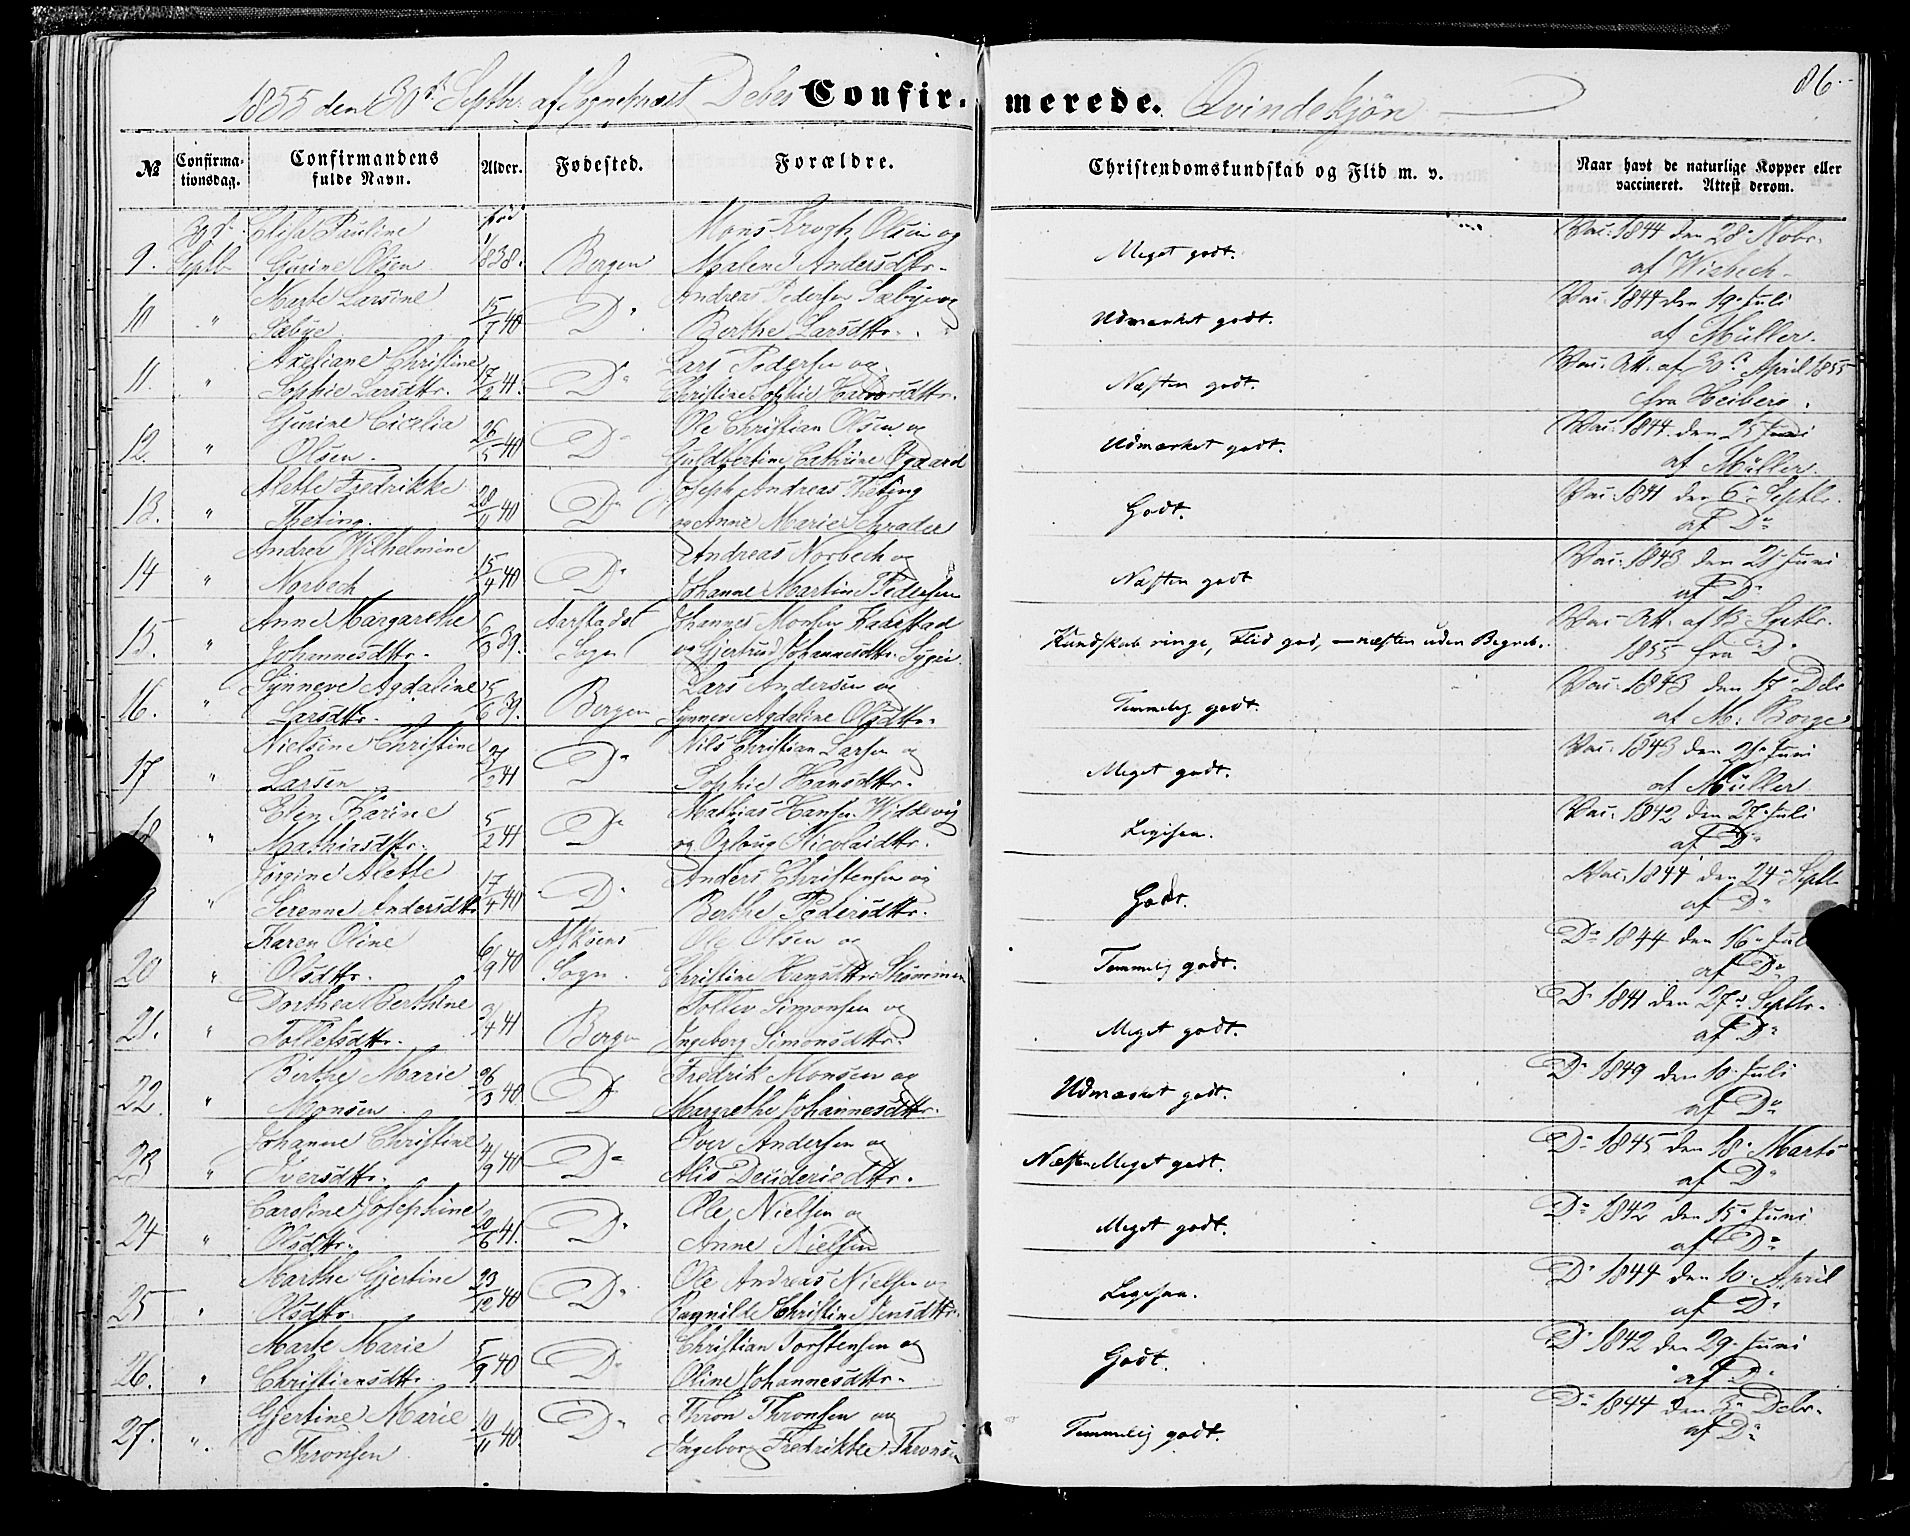 1855 den 30te Septbr. af Sogneprest Debes Confirmerede. Qvindekjøn
86.
№ Confirmationsdag. Confirmandens fulde Navn. Alder. Fødested. Forældre. Christendomskundskab og Flid m. v. Naar havt de naturlige Kopper eller vaccineret. Attest derom.
30te Elisa Pauline fød Mons Krogh Olsen og Vac: 1844 den 28de Nobr.
9. Septb Gurine Olsen 1838. Bergen Malene Andersdttr. Meget godt. af Wisbech
Marte Larsine 15/7 40 Andreas Pedersen Sæbye og Vac: 1844 den 19de Juli
10 " Sæbye Do Berthe Larsdttr. Udmærket godt. af Müller.
Axeliane Christine 17/2 41. Lars Pedersen og Vac. Att. af 30te April 1855
11. " Sophie Larsdttr. Do Christine Sophie Næsten godt. fra Heiberg.
Gurine Cicelia 26/5 40 Ole Christian Olsen og Vac: 1844 den 25 Juni
12. " Olsen. Do Guldbertine Cathrine Ødgaard Udmærket godt. af Müller.
Alette Fredrikke 20/11 40 Joseph Andreas Theting Vac: 1841 den 6te Septbr.
13. " Theting. Do og Anne Marie Schrader Godt. af Do
Andrea Wilhelmine 15/4 40 Andreas Norbech og Vac: 1843 den 21 Juni
14 " Norbech Do Johanne Martine Pedersen Næsten godt af Do
Anne Margarethe 6/3 39. Aarstads Johannes Monsen Haarstad Vac. Att. af 13 Septbr.
15. " Johannesdttr. Sogn og Gjertrud Johannesdttr. Kundskab ringe, Flid god, — næsten uden Begreb. 1855 fra Do
Synneve Agdaline 5/6 39. Lars Andersen og Vac: 1843 den 17de Debr
16. " Larsdttr. Bergen Synneve Agdaline Olsdttr. Temmelig godt. af M: Borge
Nielsine Christine 27/2 41 Nils Christian Larsen og Vac: 1843 den 21de Juni
17 " Larsen Do Sophie Hansdttr. Meget godt. af Müller
Elen Karine 5/2 41 Mathias Hansen Widdevig Vac: 1842 den 27de Juli
18 " Mathiasdttr. Do og Nicolaidttr. Ligesaa. af Do
Jørgine Alette 17/4 40 Anders Christensen og Vac: 1844 den 24de Septb
9 " Serenne Andersdttr Do Berthe Pedersdttr. Godt. af Do
Karen Oline 6/9 40 Askøens Ole Olsen og Do 1844 den 16de Jul
20 " Olsdttr. Sogn. Christine Hansdttr. Temmelig godt. af Do
Dorthea Berthine 3/4 41 Tollev Simonsen og Do 1841 den 27de Septbr.
21. " Tollefsdttr. Bergen Ingeborg Simonsdttr. Meget godt. af Do
Berthe Marie 26/3 40 Fredrik Monsen og Do 1849 den 10de Juli
22. " Monsen Do Margrethe Johannesdttr. Udmærket godt. af Do
Johanne Christine 4/9 40 Iver Andersen og Do 1845 den 18de Marts
23 " Iversdttr. Do Alis Næsten Meget godt. af Do
Caroline Josephine 20/6 41. Ole Nielsen og Do 1842 den 15de Juni
24 " Olsdttr. Do Anne Nielsen Meget godt. af Do
Marthe Gjertine 23/12 40 Ole Andreas Nielsen og Do 1844 den 10de April
25 " Olsdttr. Do Ragnilde Christine Jensdttr. Ligesaa. af Do
Marte Marie 5/9 40 Christian Torstensen og Do 1842 den 29de Juni
26. " Christiansdttr. Do Oline Johannesdttr. Godt. af Do
Gjertine Marie 10/11 40 Thron Thronsen og Do 1844 den 3de Debr.
27. " Thronsen Do Ingeborg Fredrikke Thronsen Temmelig godt. af Do